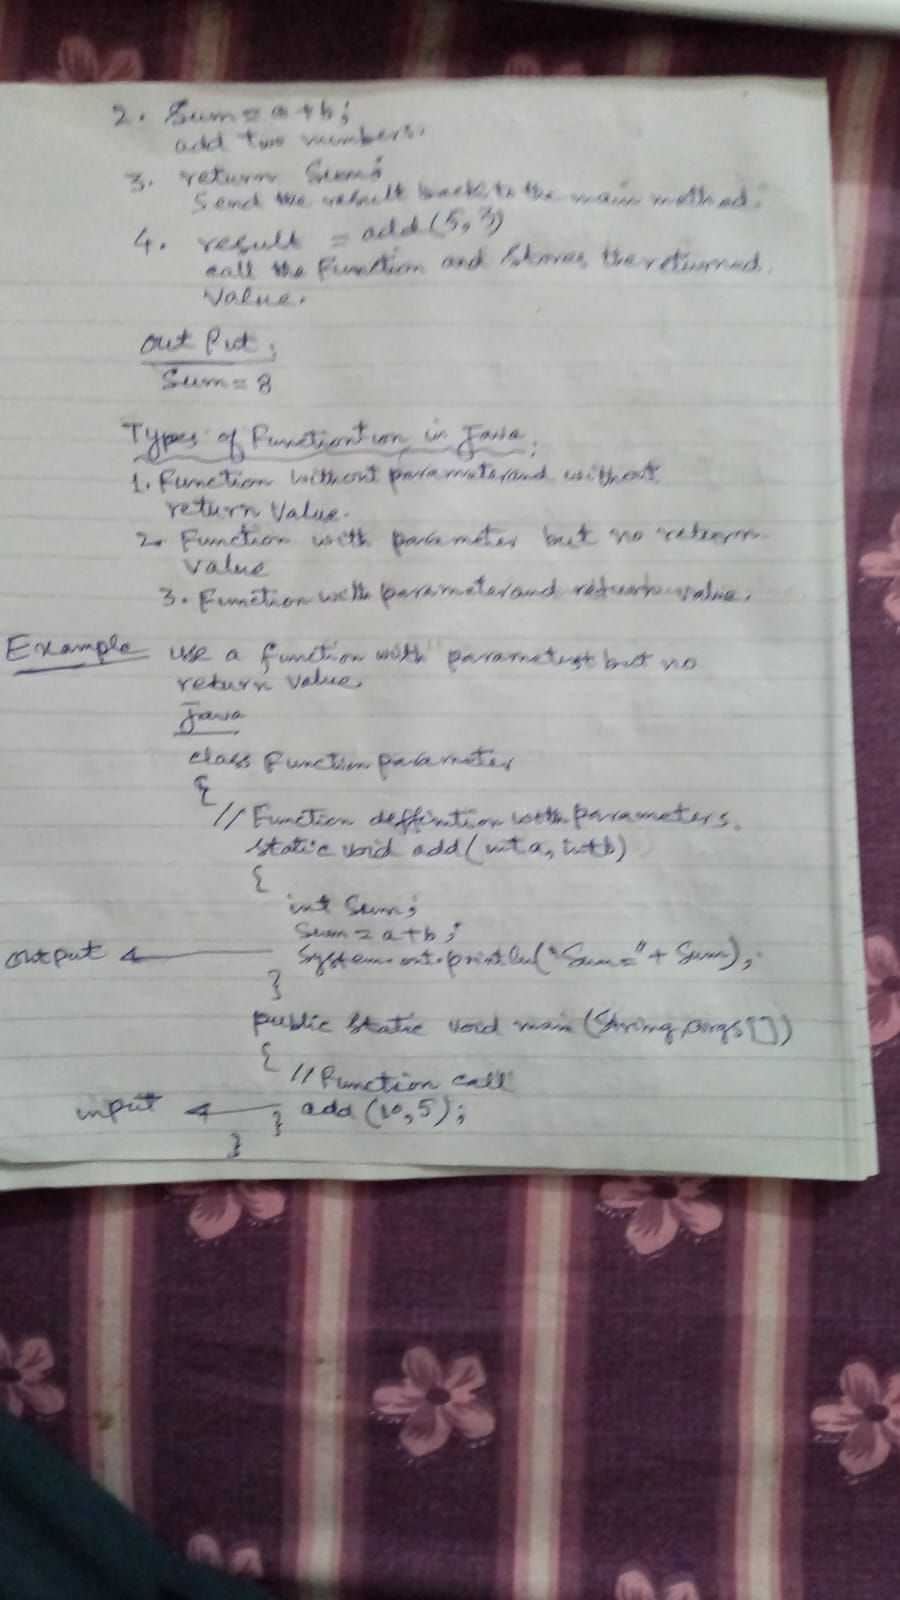 2. Sum = a + b;
add two numbers.
3. return Sum;
Send the result back to the main method.
4. result = add(5, 3)
call the Function and Stores the returned
Value.
out Put;
Sum = 8
Types of Functiontion in Java;
1. Function without parameter and without
return Value.
2. Function with parameter but no return
value
3. Function with parameter and return value.
Example use a function with parameter but no
return value
Java
class Function parameter
{
// Function deffinition with parameters.
static void add(int a, int b)
{
int Sum;
Sum = a + b;
output System.out.println("Sum=" + Sum);
}
public static void main (String args [])
{
// Function call
input } add (10, 5);
}